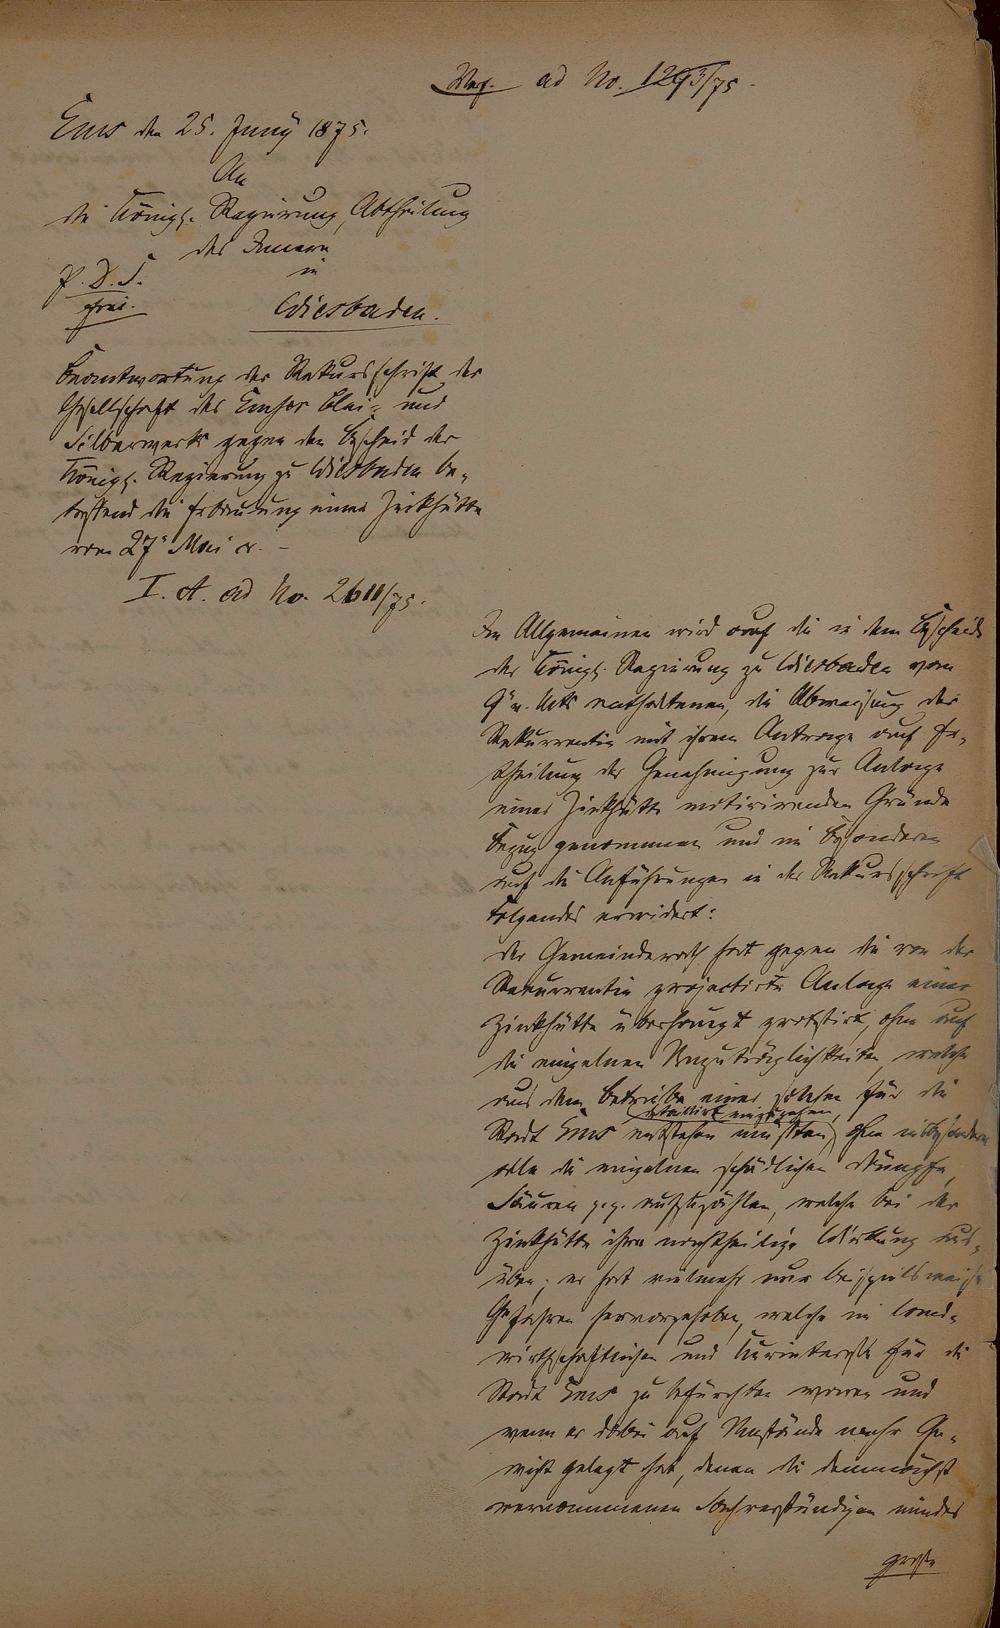 ad No. 1293/75.
Ems den 25. Juny 1875.
An
die Königl. Regierung, Abtheilung
des Innern
in
P. D. S.
frei.
Wiesbaden.
Beantwortung der Rekursschrift der
Gesellschaft des Emser Blei- und
Silberwerks gegen den Bescheid der
Königl. Regierung zu Wiesbaden be-
treffend die Erbauung einer Zinkhütte
vom 27. Mai cr. -
I. A. ad No. 2611/75.
Im Allgemeinen wird auf die in dem Bescheide
der Königl. Regierung zu Wiesbaden vom
9. v. Mts enthaltenen, die Abweisung der
Rekurrentin mit ihrem Antrage auf Er-
theilung der Genehmigung zur Anlage
einer Zinkhütte motivirenden Gründe
Bezug genommen und im Besonderen
auf die Anführungen in der Rekursschrift
Folgendes erwidert:
Der Gemeinderath hat gegen die von der
Rekurrentin projectirte Anlage einer
Zinkhütte überhaupt protestirt, ohne auf
die einzelnen Unzuträglichkeiten, welche
aus dem Betriebe einer solchen für die
detaillirt einzugehen,
Stadt Ems entstehen müssten, ohne insbesondere
alle die einzelnen schädlichen Dämpfe,
Säuren p.p. aufzuzählen, welche bei der
Zinkhütte ihre nachtheilige Wirkung aus-
üben; er hat vielmehr nur beispielsweise
Gefahren hervorgehoben, welche im land-
wirthschaftlichen und Kurinteresse für die
Stadt Ems zu befürchten waren und
wenn er dabei auf Umstände mehr Ge-
wicht gelegt hat, denen die demnächst
vernommenen Sachverständigen minder
große